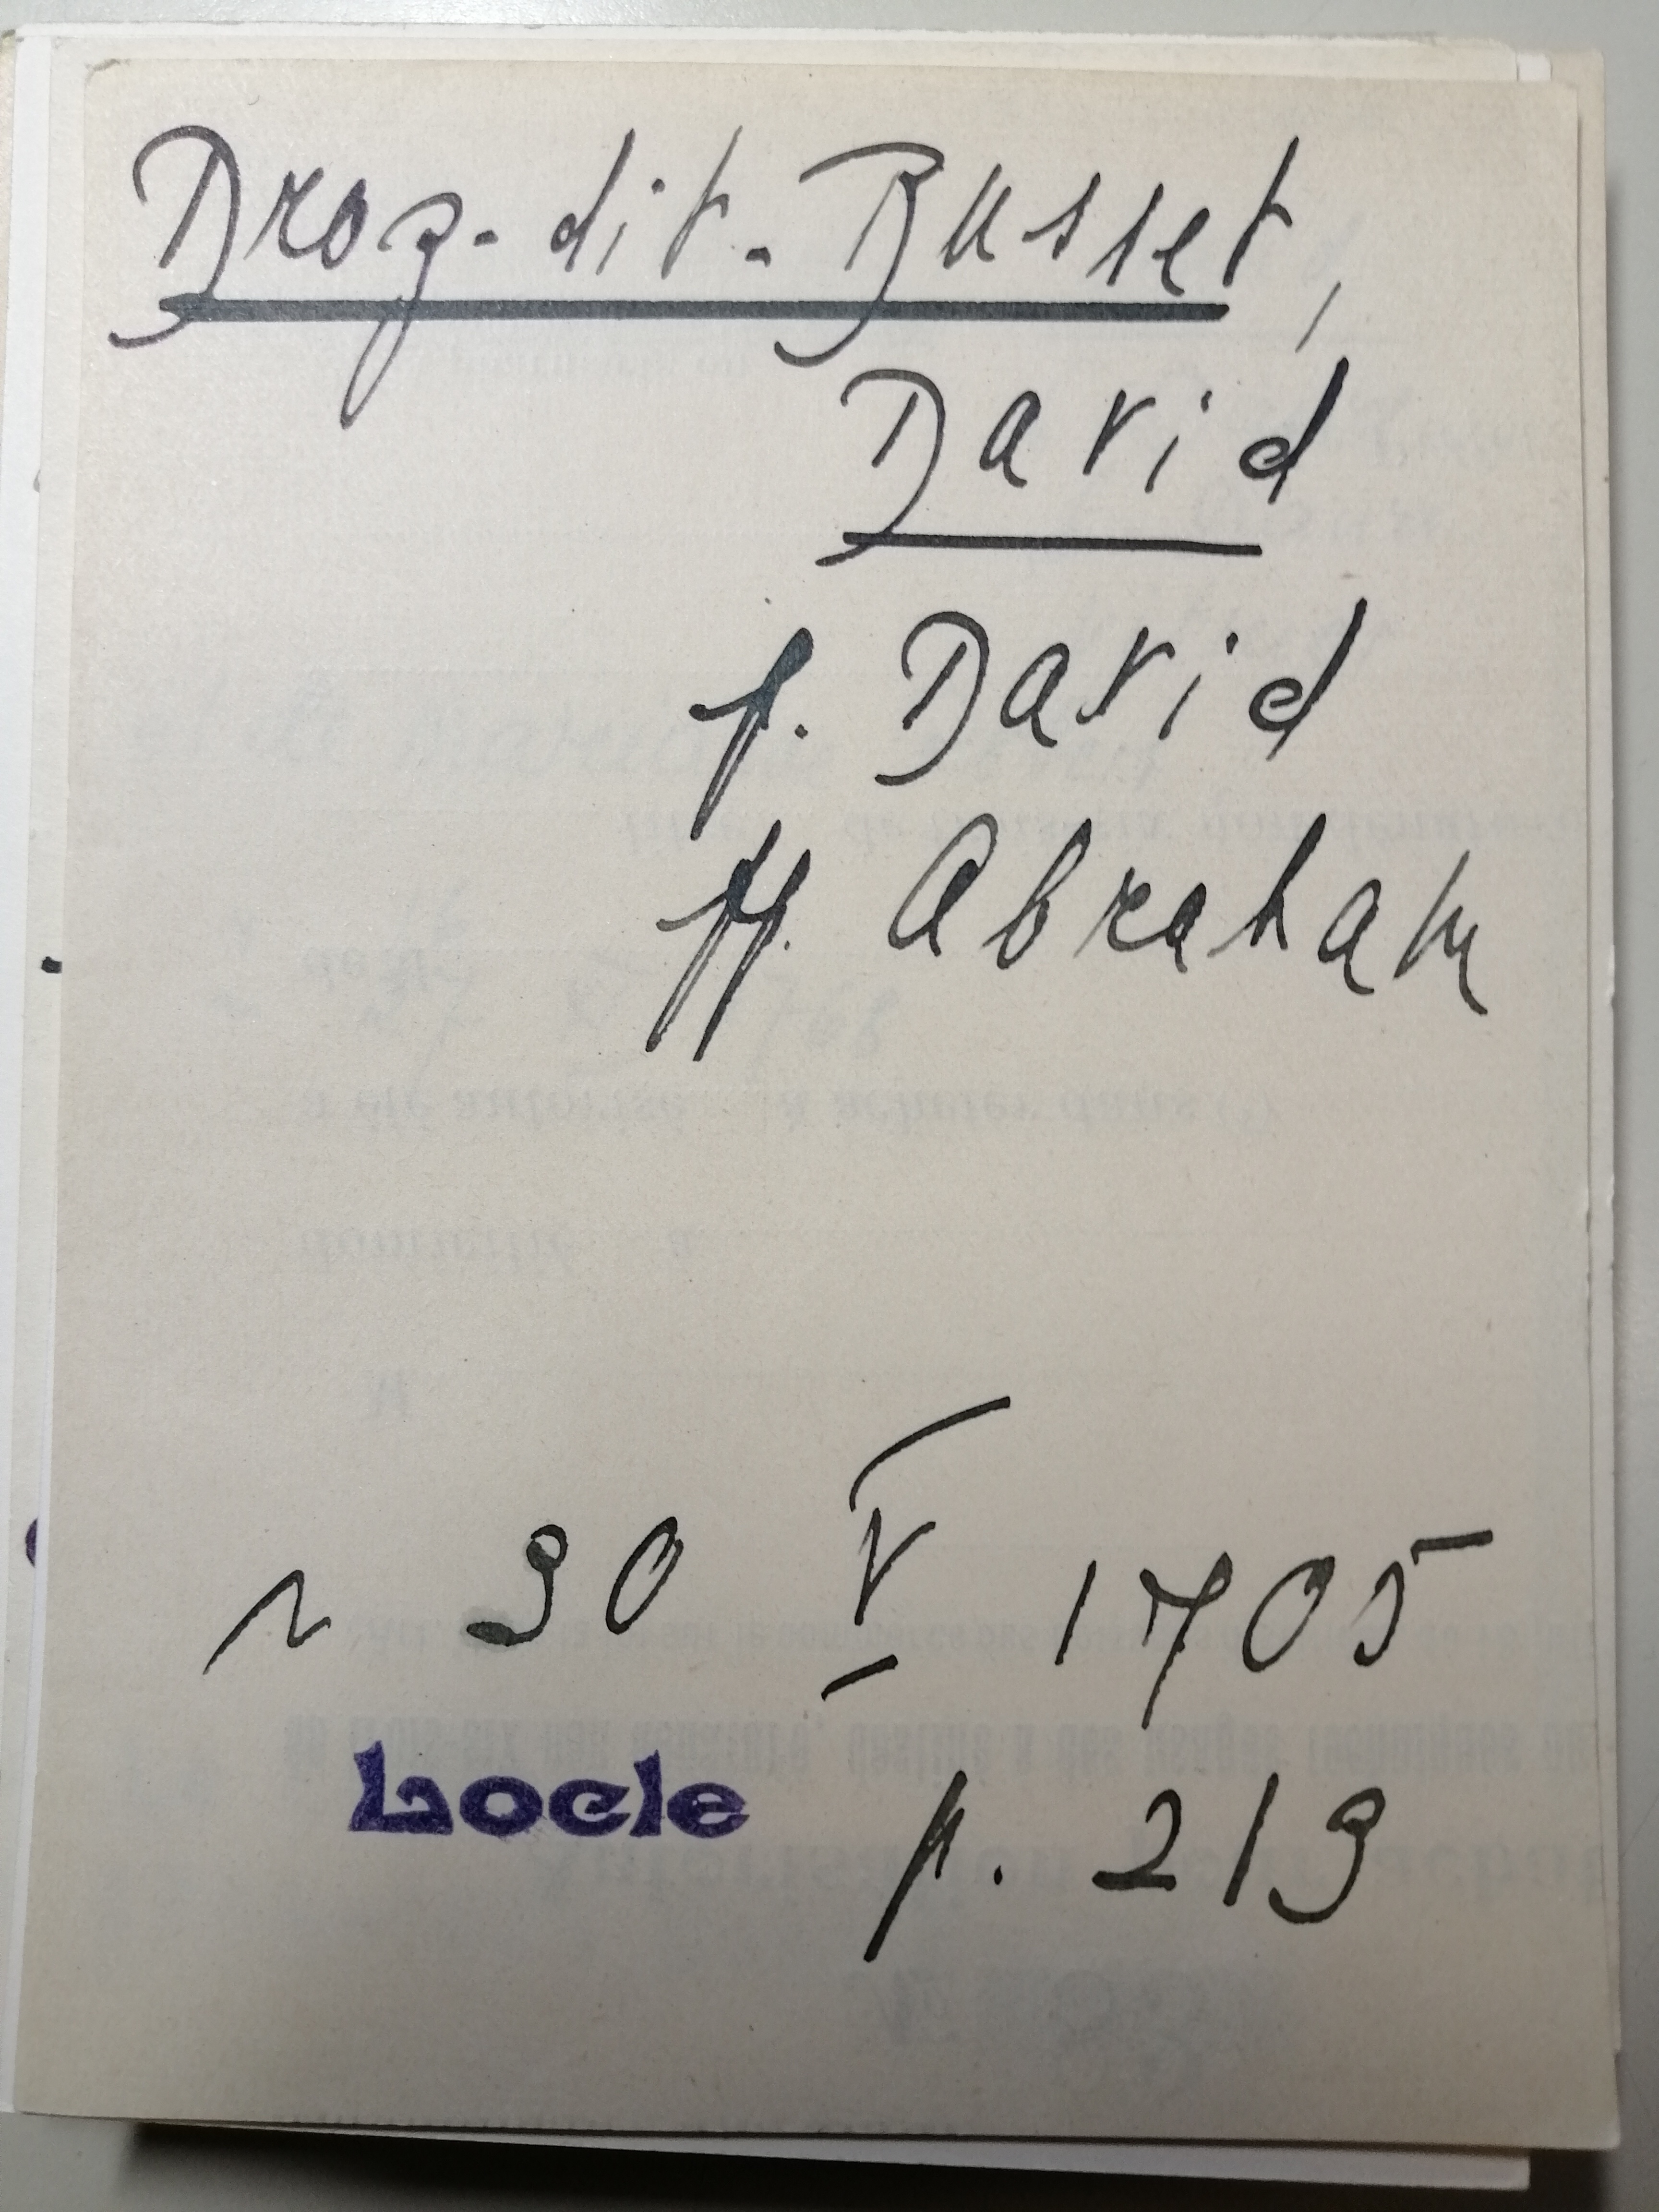 Droz-dit-Busset,
David
f. David
ff. Abraham
n 30 V 1705
Locle p. 213